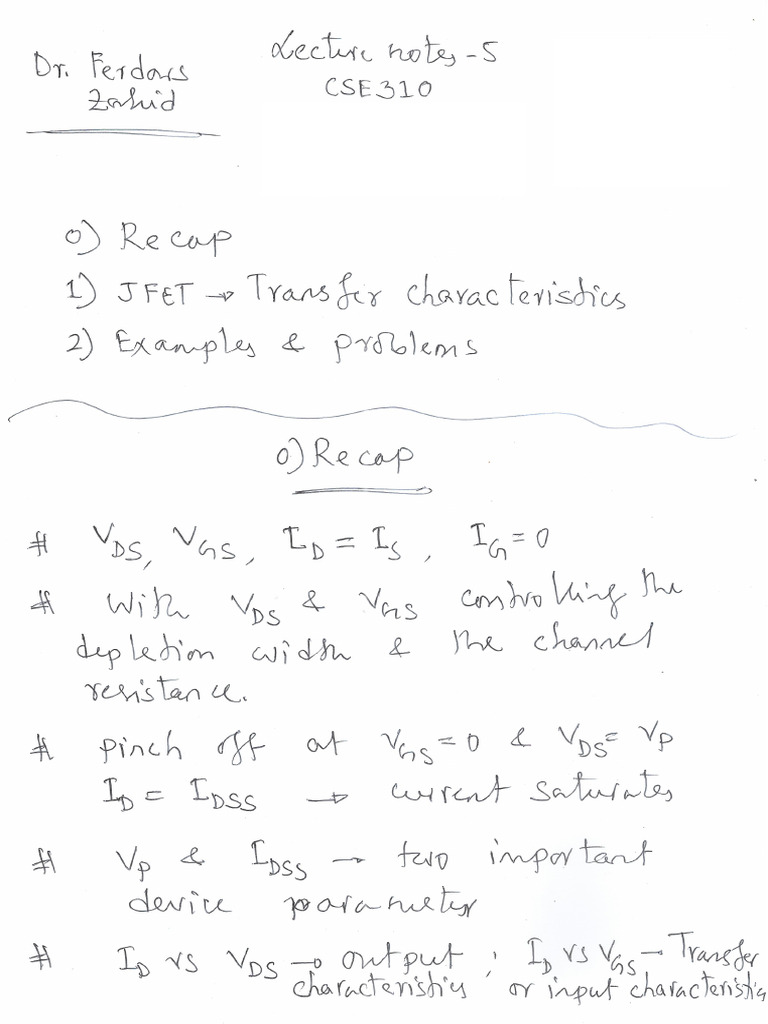 Dr. Ferdows
Zahid
Lecture notes - 5
CSE310
0) Recap
1) JFET → Transfer characteristics
2) Examples & problems
0) Recap
# V_DS, V_GS, I_D = I_S, I_G = 0
# With V_DS & V_GS controlling the
depletion width & the channel
resistance.
# pinch off at V_GS = 0 & V_DS = V_P
I_D = I_DSS → current saturates
# V_P & I_DSS → two important
device parameter
# I_D vs V_DS → output ; I_D vs V_GS → Transfer
characteristics or input characteristics